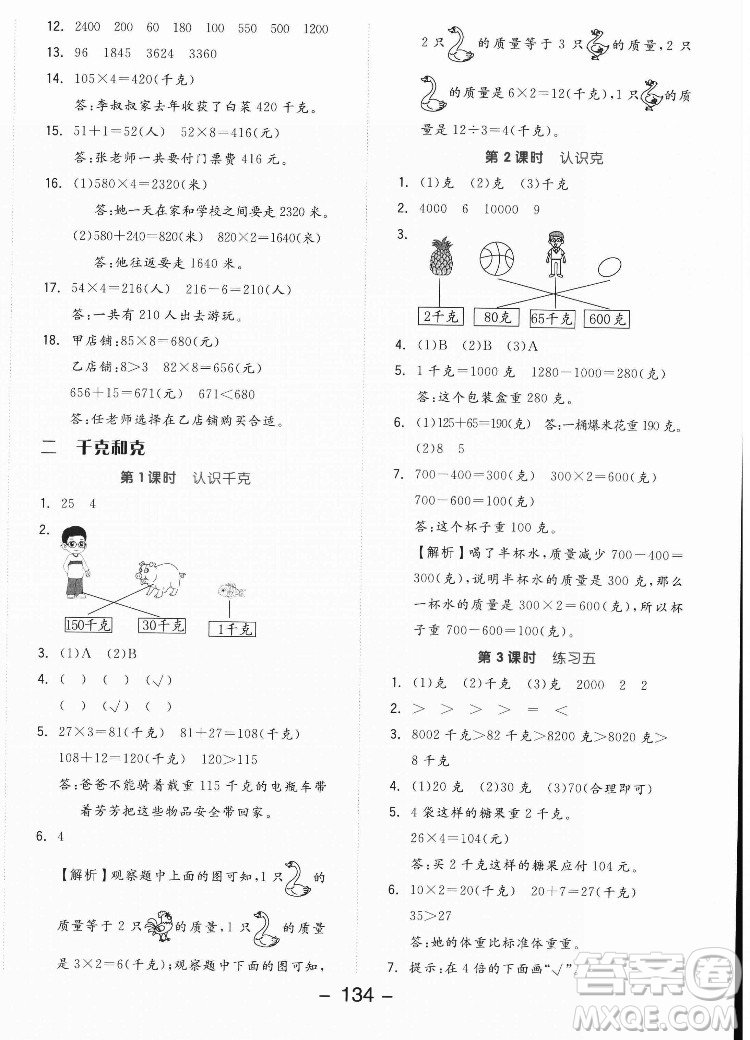 12. 2400 200 60 180 1600 550 1200
13. 96 1845 3624 3360
14. 105×4=420(千克)
答:李叔叔家去年收获了白菜 420 千克。
15. 51+1=52(人) 52×8=416(元)
答:张老师一共要付门票费 416 元。
16. (1)580×4=2320(米)
答:她一天在家和学校之间要走 2320 米。
(2)580+240=820(米) 820×2=1640(米)
答:他往返要走 1640 米。
17. 54×4=216(人) 216-6=210(人)
答:一共有 210 人出去游玩。
18. 甲店铺:85×8=680(元)
乙店铺:8>3 82×8=656(元)
656+15=671(元) 671<680
答:任老师选择在乙店铺购买合适。
二 千克和克
第1课时 认识千克
1. 25 4
2.
150千克 30千克 1千克
3. (1)A (2)B
4. ( ) ( ) (√) ( )
5. 27×3=81(千克) 81+27=108(千克)
108+12=120(千克) 120>115
答:爸爸不能骑着载重 115 千克的电瓶车带
着芳芳把这些物品安全带回家。
6. 4
【解析】观察题中上面的图可知,1 只 的
质量等于 2 只 的质量,1 只 的质量
是 3×2=6(千克);观察题中下面的图可知,
2 只 的质量等于 3 只 的质量,2 只
的质量是 6×2=12(千克),1 只 的质
量是 12÷3=4(千克)。
第2课时 认识克
1. (1)克 (2)克 (3)千克
2. 4000 6 10000 9
3.
2千克 80克 65千克 600克
4. (1)B (2)B (3)A
5. 1千克=1000克 1280-1000=280(克)
答:这个包装盒重 280 克。
6. (1)125+65=190(克) 答:一桶爆米花重 190 克。
(2)8 5
7. 700-400=300(克) 300×2=600(克)
700-600=100(克)
答:这个杯子重 100 克。
【解析】喝了半杯水,质量减少 700-400=
300(克),说明半杯水的质量是 300 克,那么
一杯水的质量是 300×2=600(克),所以杯
子重 700-600=100(克)。
第3课时 练习五
1. (1)克 (2)千克 (3)克 2000 2 2
2. > > > > = <
3. 8002 千克>82 千克>8200 克>8020 克>
8 千克
4. (1)20 克 (2)20 克 (3)70(合理即可)
5. 4 袋这样的糖果重 2 千克。
26×4=104(元)
答:买 2 千克这样的糖果应付 104 元。
6. 10×2=20(千克) 20+7=27(千克)
35>27
答:她的体重比标准体重重。
7. 提示:在 4 倍的下面画“√”
- 134 -
答案圈
MXQE.COM